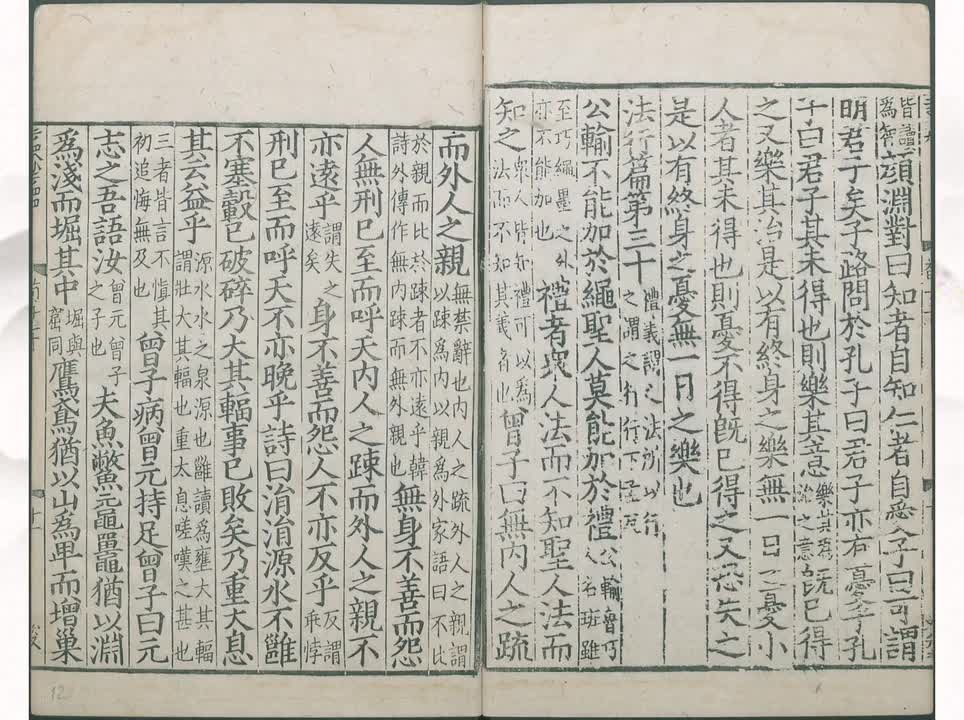 皆讀為智顔淵對曰知者自知仁者自愛子曰可謂
明君子矣子路問於孔子曰君子亦有憂乎孔
子曰君子其未得也則樂其意樂其為治之意既已得
之又樂其治是以有終身之樂無一日之憂小
人者其未得也則憂不得既已得之又恐失之
是以有終身之憂無一日之樂也
法行篇第三十禮義謂之法所以行之謂之行行下孟反
公輸不能加於繩聖人莫能加於禮公輸魯巧人名班雖
至巧繩墨之外亦不能加也禮者眾人法而不知聖人法而
知之眾人皆知禮可以為法而不知其義者也曾子曰無内人之疏
而外人之親無禁辭也内人之疏外人之親謂以疎為内以親為外家語曰不比
於親而比於疎者不亦遠乎韓詩外傳作無内疎而無外親也無身不善而怨
人無刑已至而呼天内人之疎而外人之親不
亦遠乎謂失之遠矣身不善而怨人不亦反乎反謂乖悖
刑已至而呼天不亦晚乎詩曰涓涓源水不雝
不塞轂已破碎乃大其輻事已敗矣乃重大息
其云益乎源水水之泉源也雝讀為壅大其輻謂壯大其輻也重太息嗟嘆之甚也
三者皆言不慎其初追悔無及也曾子病曾元持足曾子曰元
志之吾語汝曾元曾子之子也夫魚鱉黿鼉猶以淵
為淺而堀其中堀與窟同鷹鳶猶以山為卑而增巢
12